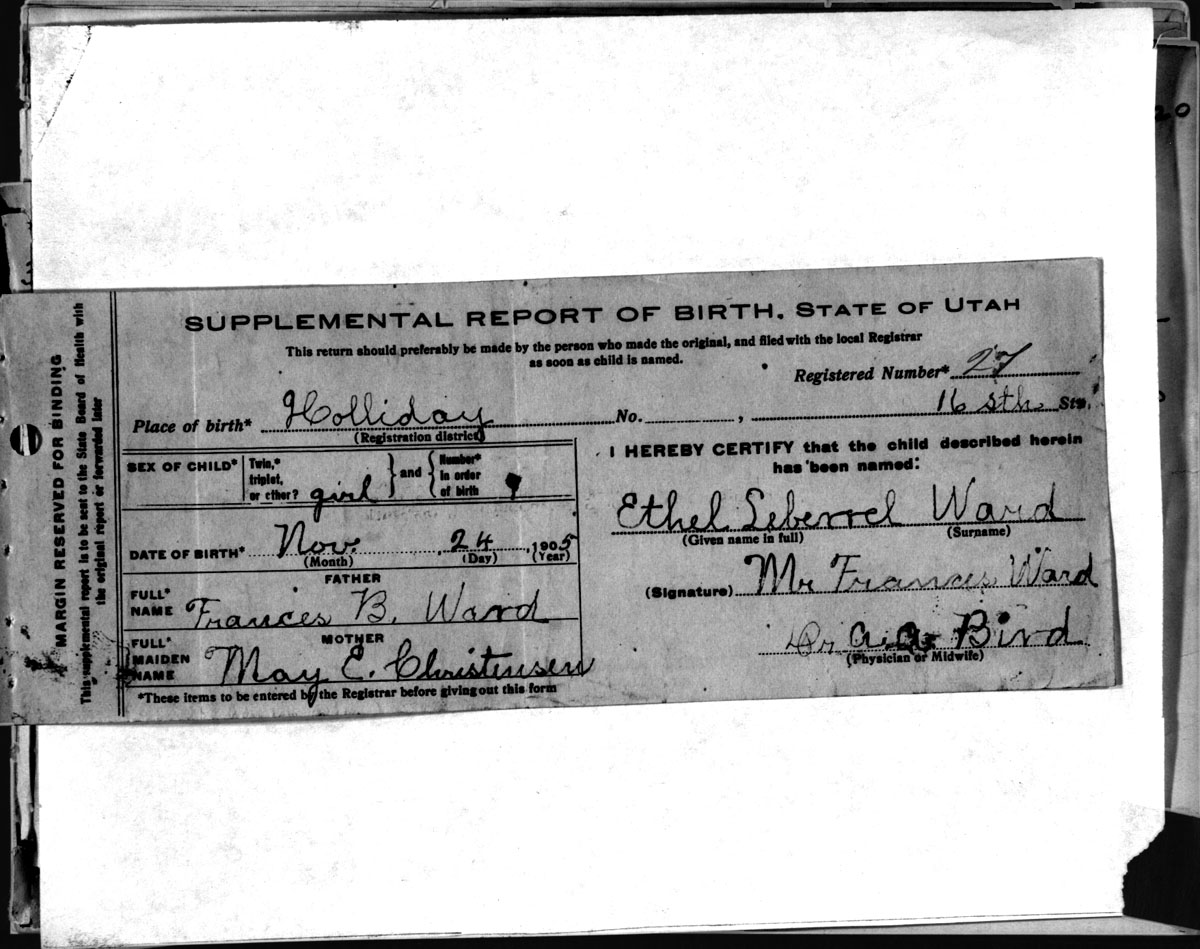 SUPPLEMENTAL REPORT OF BIRTH. STATE OF UTAH
This return should preferably be made by the person who made the original, and filed with the local Registrar
as soon as child is named.
Registered Number* 27
Place of birth* Holliday No. , 16 sth Sts.
(Registration district)
SEX OF CHILD* Twin,* triplet, or other? girl and Number* in order of birth
DATE OF BIRTH* Nov. , 24 , 1905
(Month) (Day) (Year)
FATHER
FULL* NAME Frances B. Ward
MOTHER
FULL* MAIDEN NAME May E. Christensen
*These items to be entered by the Registrar before giving out this form
I HEREBY CERTIFY that the child described herein
has been named:
Ethel Ward
(Given name in full) (Surname)
(Signature) Mr Frances Ward
Dr a.a. Bird
(Physician or Midwife)
MARGIN RESERVED FOR BINDING
This supplemental report is to be sent to the State Board of Health with
the original report or forwarded later
20